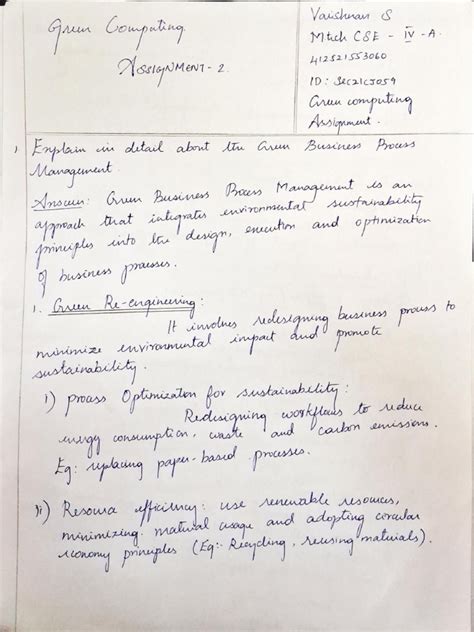 Green Computing
Assignment - 2.
Vaishnavi S
Mtech CSE - IV - A.
412521553060
ID: SEC21CJ054
Green computing
Assignment.
1 Explain in detail about the Green Business Process
Management.
Answer: Green Business Process Management is an
approach that integrates environmental sustainability
principles into the design, execution and optimization
of business processes.
1. Green Re-engineering:
It involves redesigning business process to
minimize environmental impact and promote
sustainability.
i) process Optimization for sustainability:
Redesigning workflows to reduce
energy consumption, waste and carbon emissions.
Eg: replacing paper-based processes.
ii) Resource efficiency: use renewable resources,
minimizing material usage and adopting circular
economy principles (Eg:- Recycling, reusing materials).